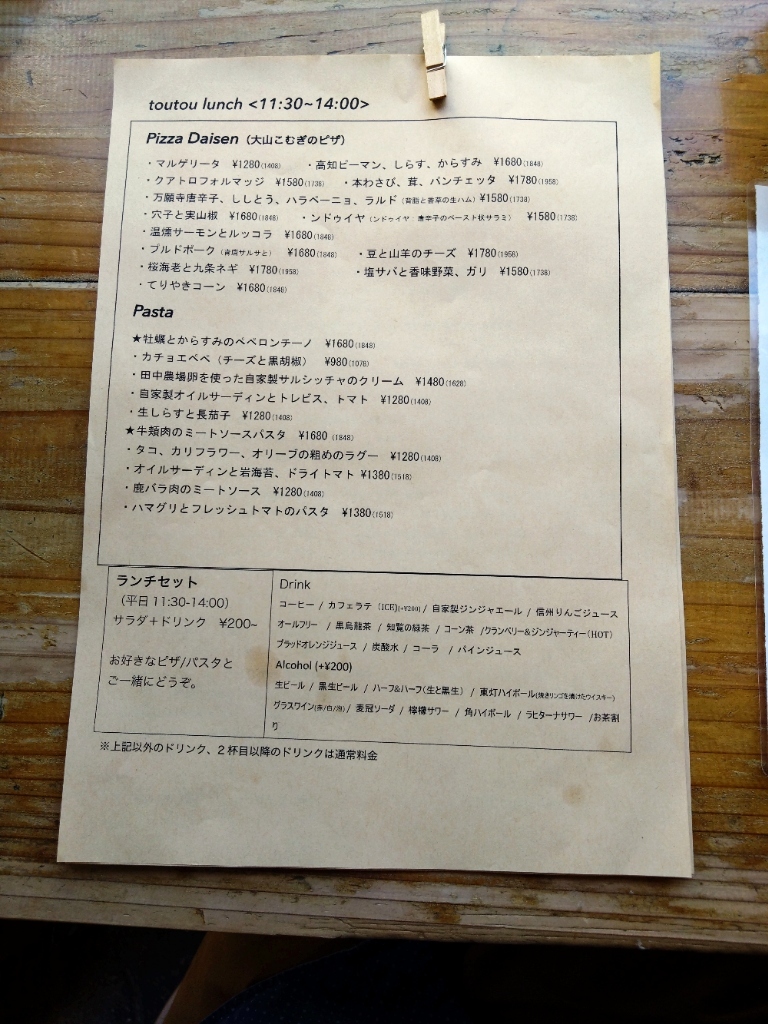 toutou lunch <11:30~14:00>
Pizza Daisen（大山こむぎのピザ）
・マルゲリータ ¥1280(1408) ・高知ピーマン、しらす、からすみ ¥1680(1848)
・クアトロフォルマッジ ¥1580(1738) ・本わさび、茸、パンチェッタ ¥1780(1958)
・万願寺唐辛子、ししとう、ハラペーニョ、ラルド（背脂と香草の生ハム）¥1580(1738)
・穴子と実山椒 ¥1680(1848) ・ンドゥイヤ（ンドゥイヤ：唐辛子のペースト状サラミ） ¥1580(1738)
・温燻サーモンとルッコラ ¥1680(1848)
・プルドポーク（青唐サルサと） ¥1680(1848) ・豆と山羊のチーズ ¥1780(1958)
・桜海老と九条ネギ ¥1780(1958) ・塩サバと香味野菜、ガリ ¥1580(1738)
・てりやきコーン ¥1680(1848)
Pasta
★牡蠣とからすみのペペロンチーノ ¥1680(1848)
・カチョエペペ（チーズと黒胡椒） ¥980(1078)
・田中農場卵を使った自家製サルシッチャのクリーム ¥1480(1628)
・自家製オイルサーディンとトレビス、トマト ¥1280(1408)
・生しらすと長茄子 ¥1280(1408)
★牛頬肉のミートソースパスタ ¥1680 (1848)
・タコ、カリフラワー、オリーブの粗めのラグー ¥1280(1408)
・オイルサーディンと岩海苔、ドライトマト ¥1380(1518)
・鹿バラ肉のミートソース ¥1280(1408)
・ハマグリとフレッシュトマトのパスタ ¥1380(1518)
ランチセット
（平日 11:30-14:00）
サラダ＋ドリンク ¥200~
お好きなピザ/パスタと
ご一緒にどうぞ。
Drink
コーヒー / カフェラテ [ICE](+¥200) / 自家製ジンジャエール / 信州りんごジュース
オールフリー / 黒烏龍茶 / 知覧の緑茶 / コーン茶 /クランベリー&ジンジャーティー(HOT)
ブラッドオレンジジュース / 炭酸水 / コーラ / パインジュース
Alcohol (+¥200)
生ビール / 黒生ビール / ハーフ&ハーフ(生と黒生) / 東灯ハイボール(焼きリンゴを漬けたウイスキー)
グラスワイン(赤/白/泡)/ 麦冠ソーダ / 檸檬サワー / 角ハイボール / ラヒターナサワー /お茶割
り
※上記以外のドリンク、2杯目以降のドリンクは通常料金